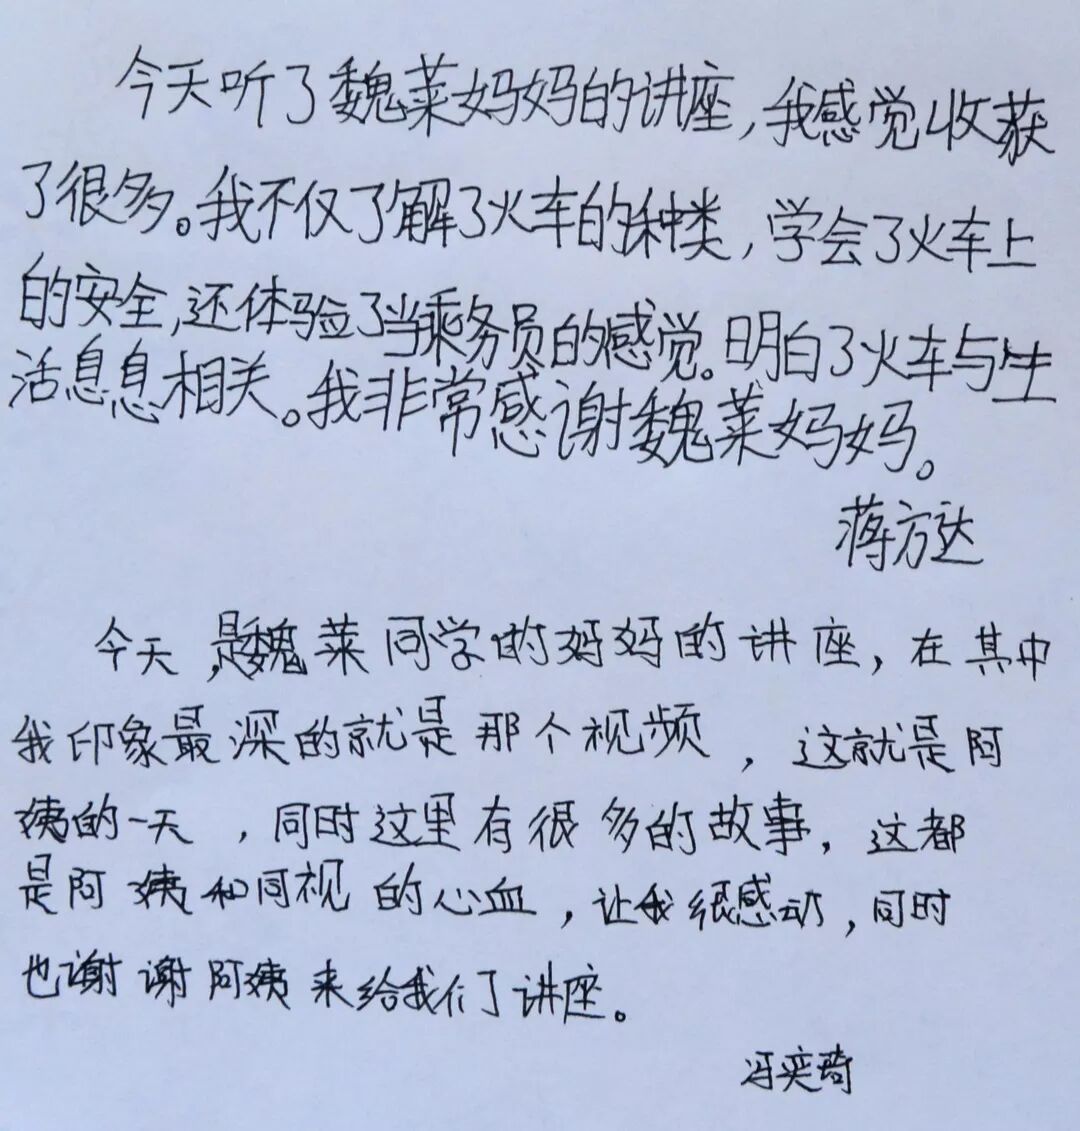 今天听了魏莱妈妈的讲座,我感觉收获
了很多。我不仅了解了火车的种类,学会了火车上
的安全,还体验了当乘务员的感觉。明白了火车与生
活息息相关。我非常感谢魏莱妈妈。
蒋方达
今天,是魏莱同学的妈妈的讲座,在其中
我印象最深的就是那个视频,这就是阿
姨的一天,同时这里有很多的故事,这都
是阿姨和同视的心血,让我很感动,同时
也谢谢阿姨来给我们了讲座。
冯奕琦